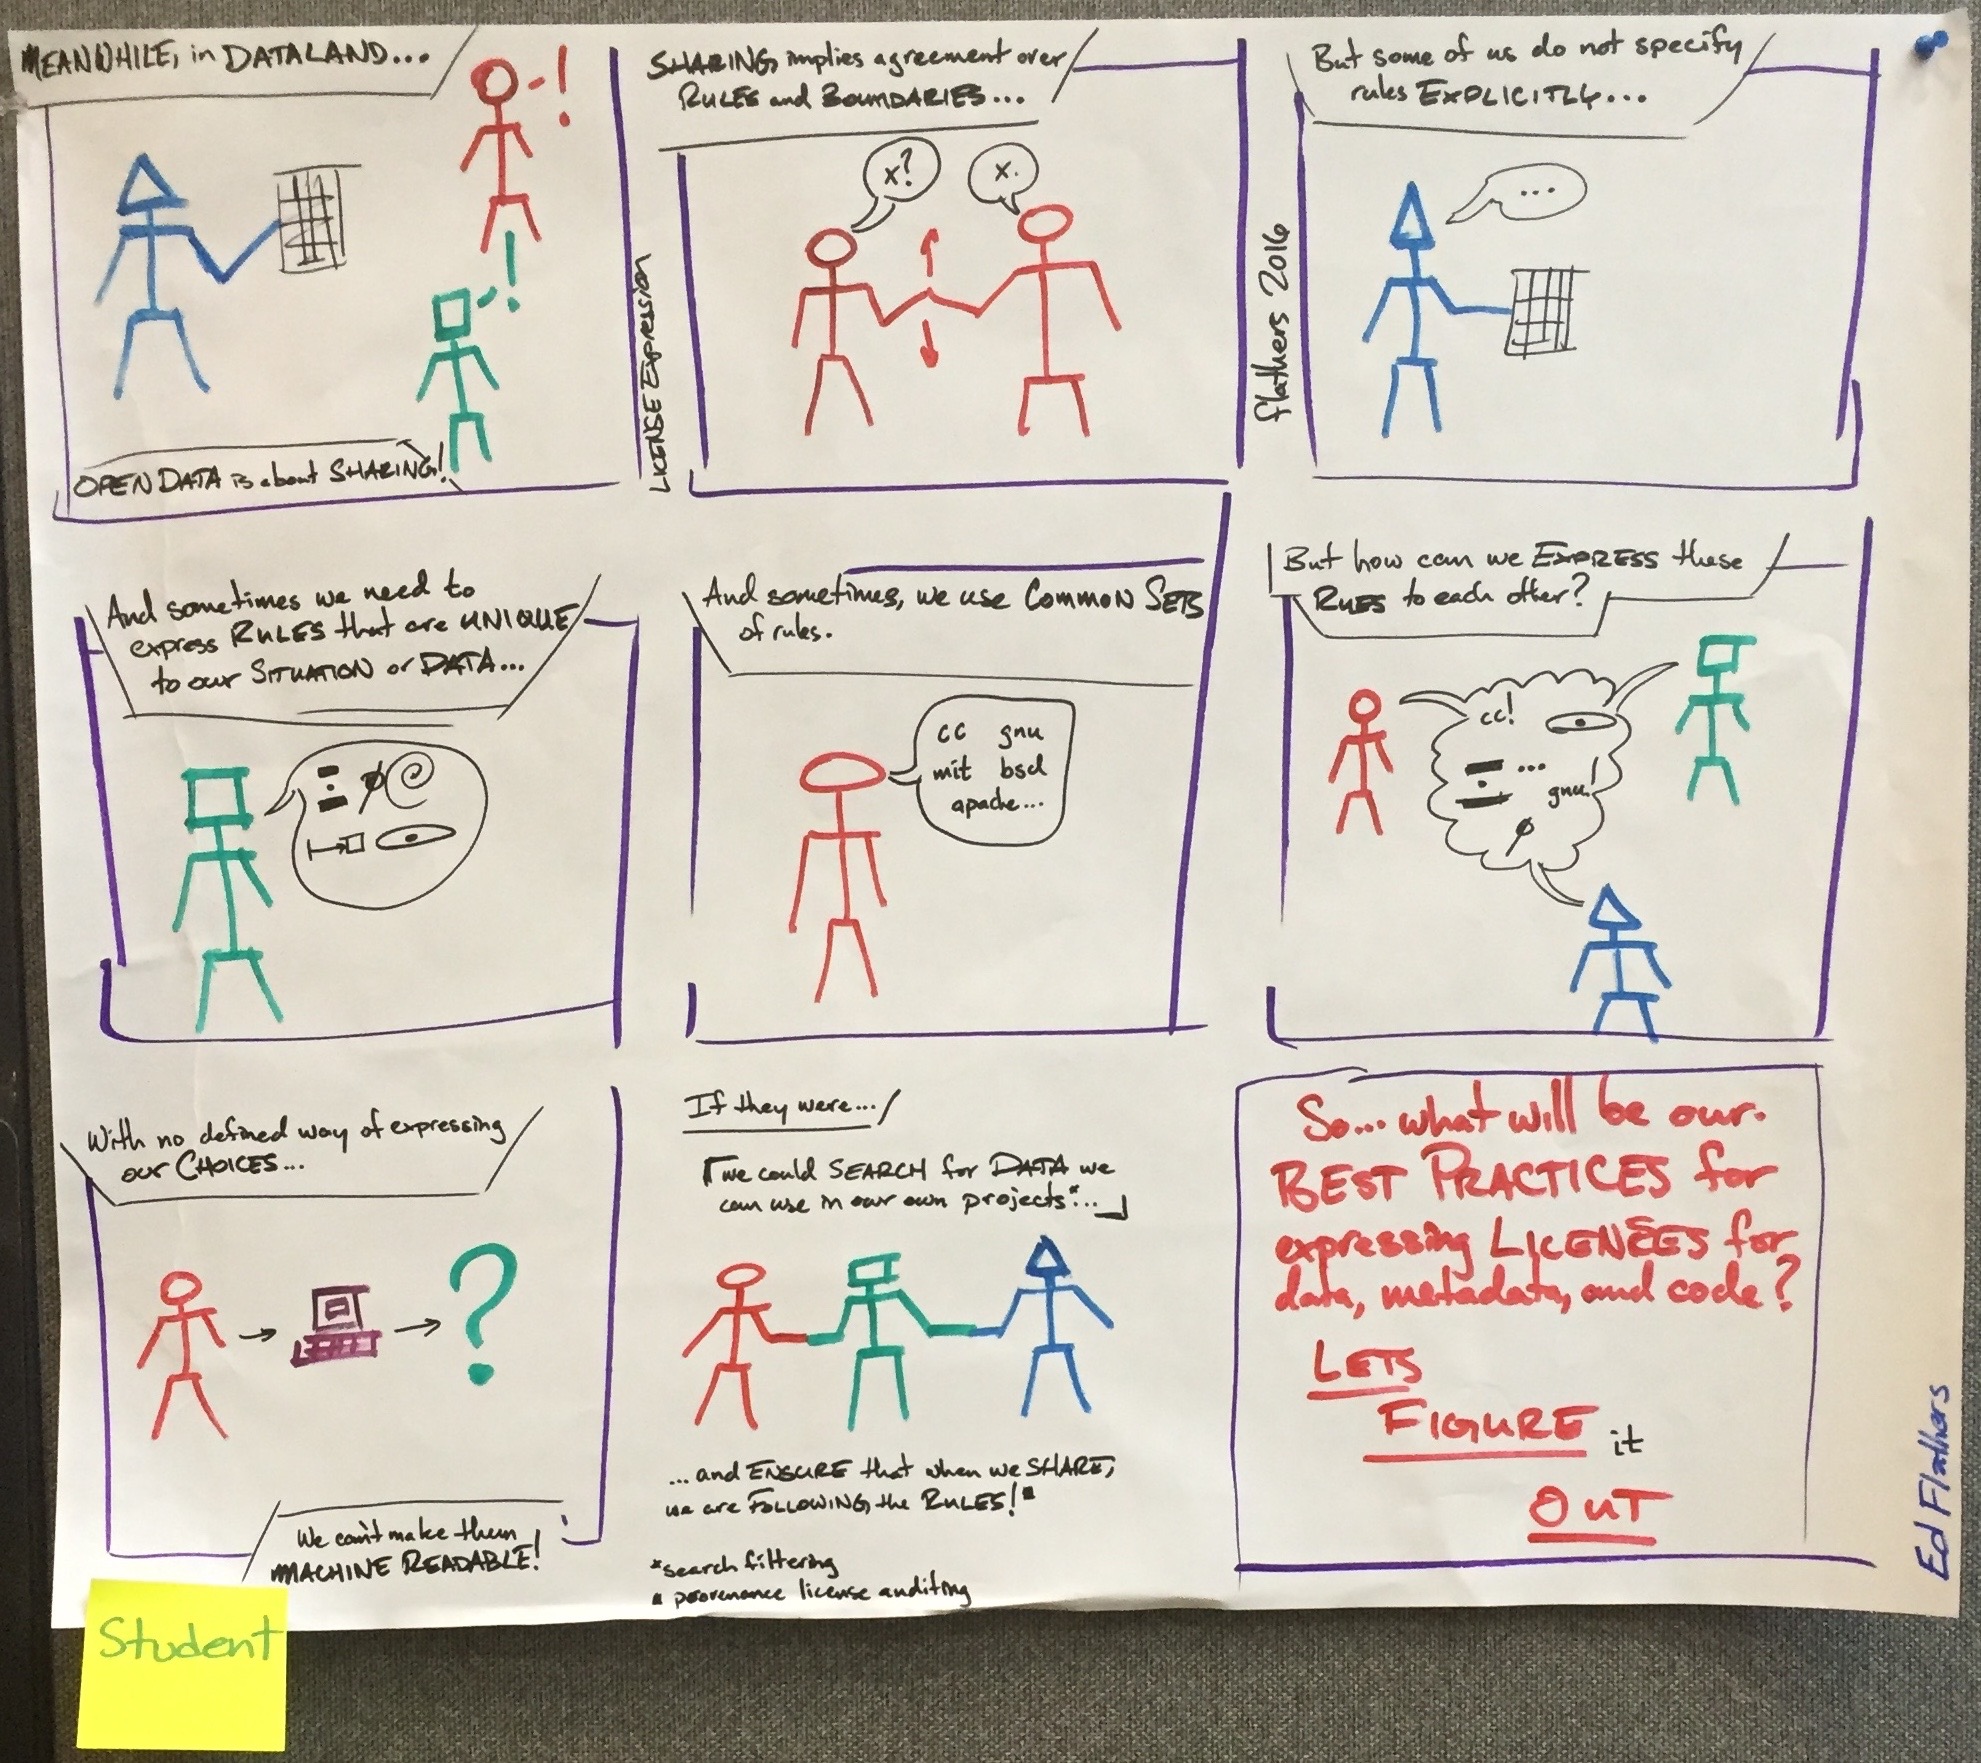 MEANWHILE, in DATALAND...
OPEN DATA is about SHARING!
LICENSE EXPRESSION
SHARING implies agreement over
RULES and BOUNDARIES...
x?
x.
flathers 2016
But some of us do not specify
rules EXPLICITLY...
...
And sometimes we need to
express RULES that are UNIQUE
to our SITUATION or DATA...
And sometimes, we use COMMON SETS
of rules.
cc gnu
mit bsd
apache...
But how can we EXPRESS these
RULES to each other?
cc!
...
gnu!
With no defined way of expressing
our CHOICES...
?
We can't make them
MACHINE READABLE!
If they were...
we could SEARCH for DATA we
can use in our own projects*...
...and ENSURE that when we SHARE,
we are FOLLOWING the RULES!▪
*search filtering
▪ provenance license auditing
So... what will be our
BEST PRACTICES for
expressing LICENSES for
data, metadata, and code?
LETS
FIGURE it
OUT
Ed Flathers
Student